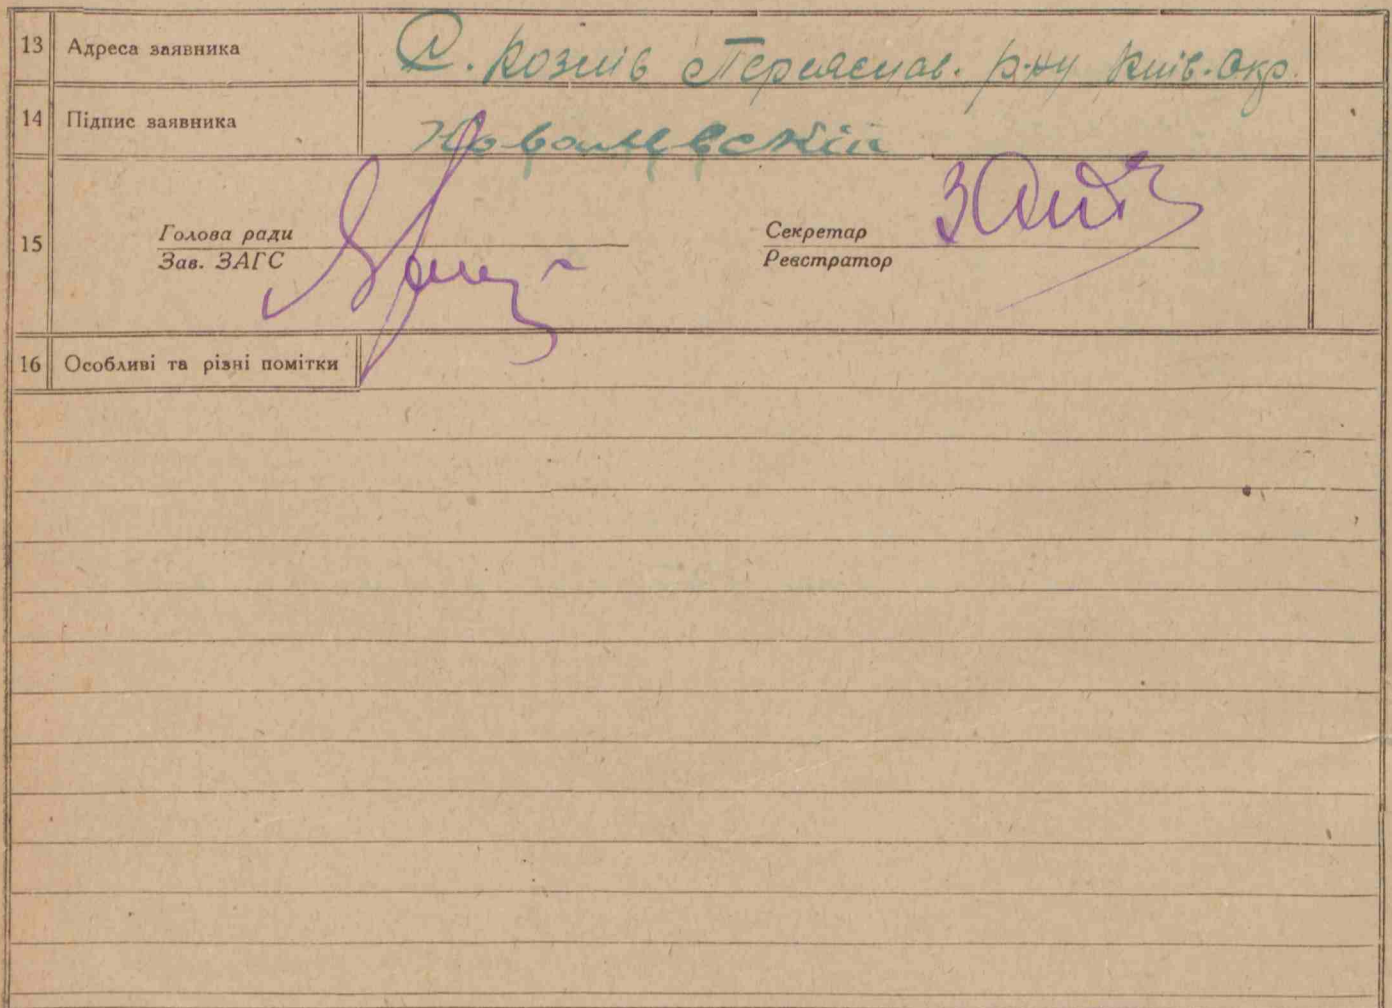 13 Адреса заявника С. Козлів Переяслав. р-ну Київ. Окр.
14 Підпис заявника Ковалевскій
15 Голова ради Секретар
Зав. ЗАГС Реєстратор
16 Особливі та різні помітки